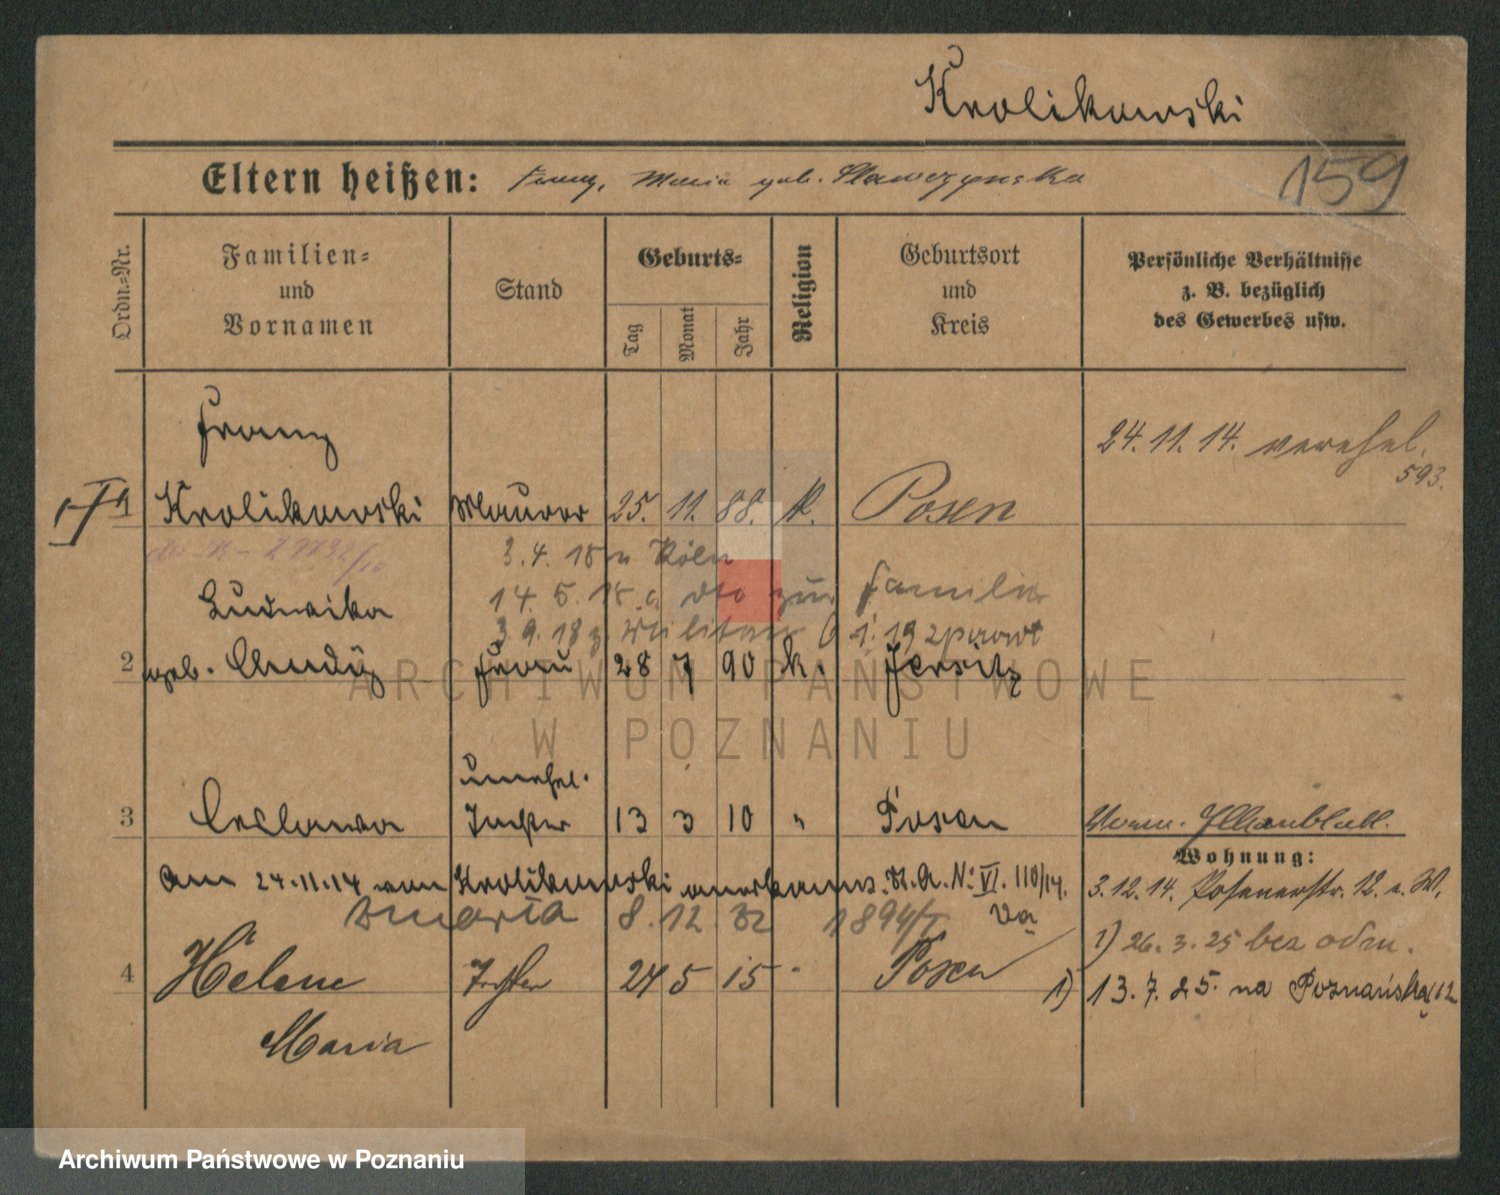 Krolikowski
Eltern heißen: Franz, Maria geb. Slawczynska
159
Ordn.-Nr.
Familien- und Vornamen
Stand
Geburts-
Tag Monat Jahr
Religion
Geburtsort und Kreis
Persönliche Verhältnisse z. B. bezüglich des Gewerbes usw.
Franz
24. 11. 14. verehel.
593.
1 Krolikowski Maurer 25. 11. 88. k. Posen
3. 4. 18 n Köln
14. 5. 18 dto zur Familie
Ludwika
3. 9. 18 z. Militär 1. 19 zurück
2 geb. Frau 28 7 90 k. Jersitz
unehel.
3 Ceslawa Tochter 13 3 10 " Posen
Wohnung:
am 24.11.14 von Krolikowski anerkannt. St. A. No VI. 110/14.
3. 12. 14. Posenerstr. 12. b. W.
Maria 8. 12. 22 1894/
1) 26. 3. 25 bez odm.
4 Helene Tochter 24 5 15 " Posen
1) 13. 7. 25. na Poznańska 62
Maria
ARCHIWUM PAŃSTWOWE
W POZNANIU
Archiwum Państwowe w Poznaniu